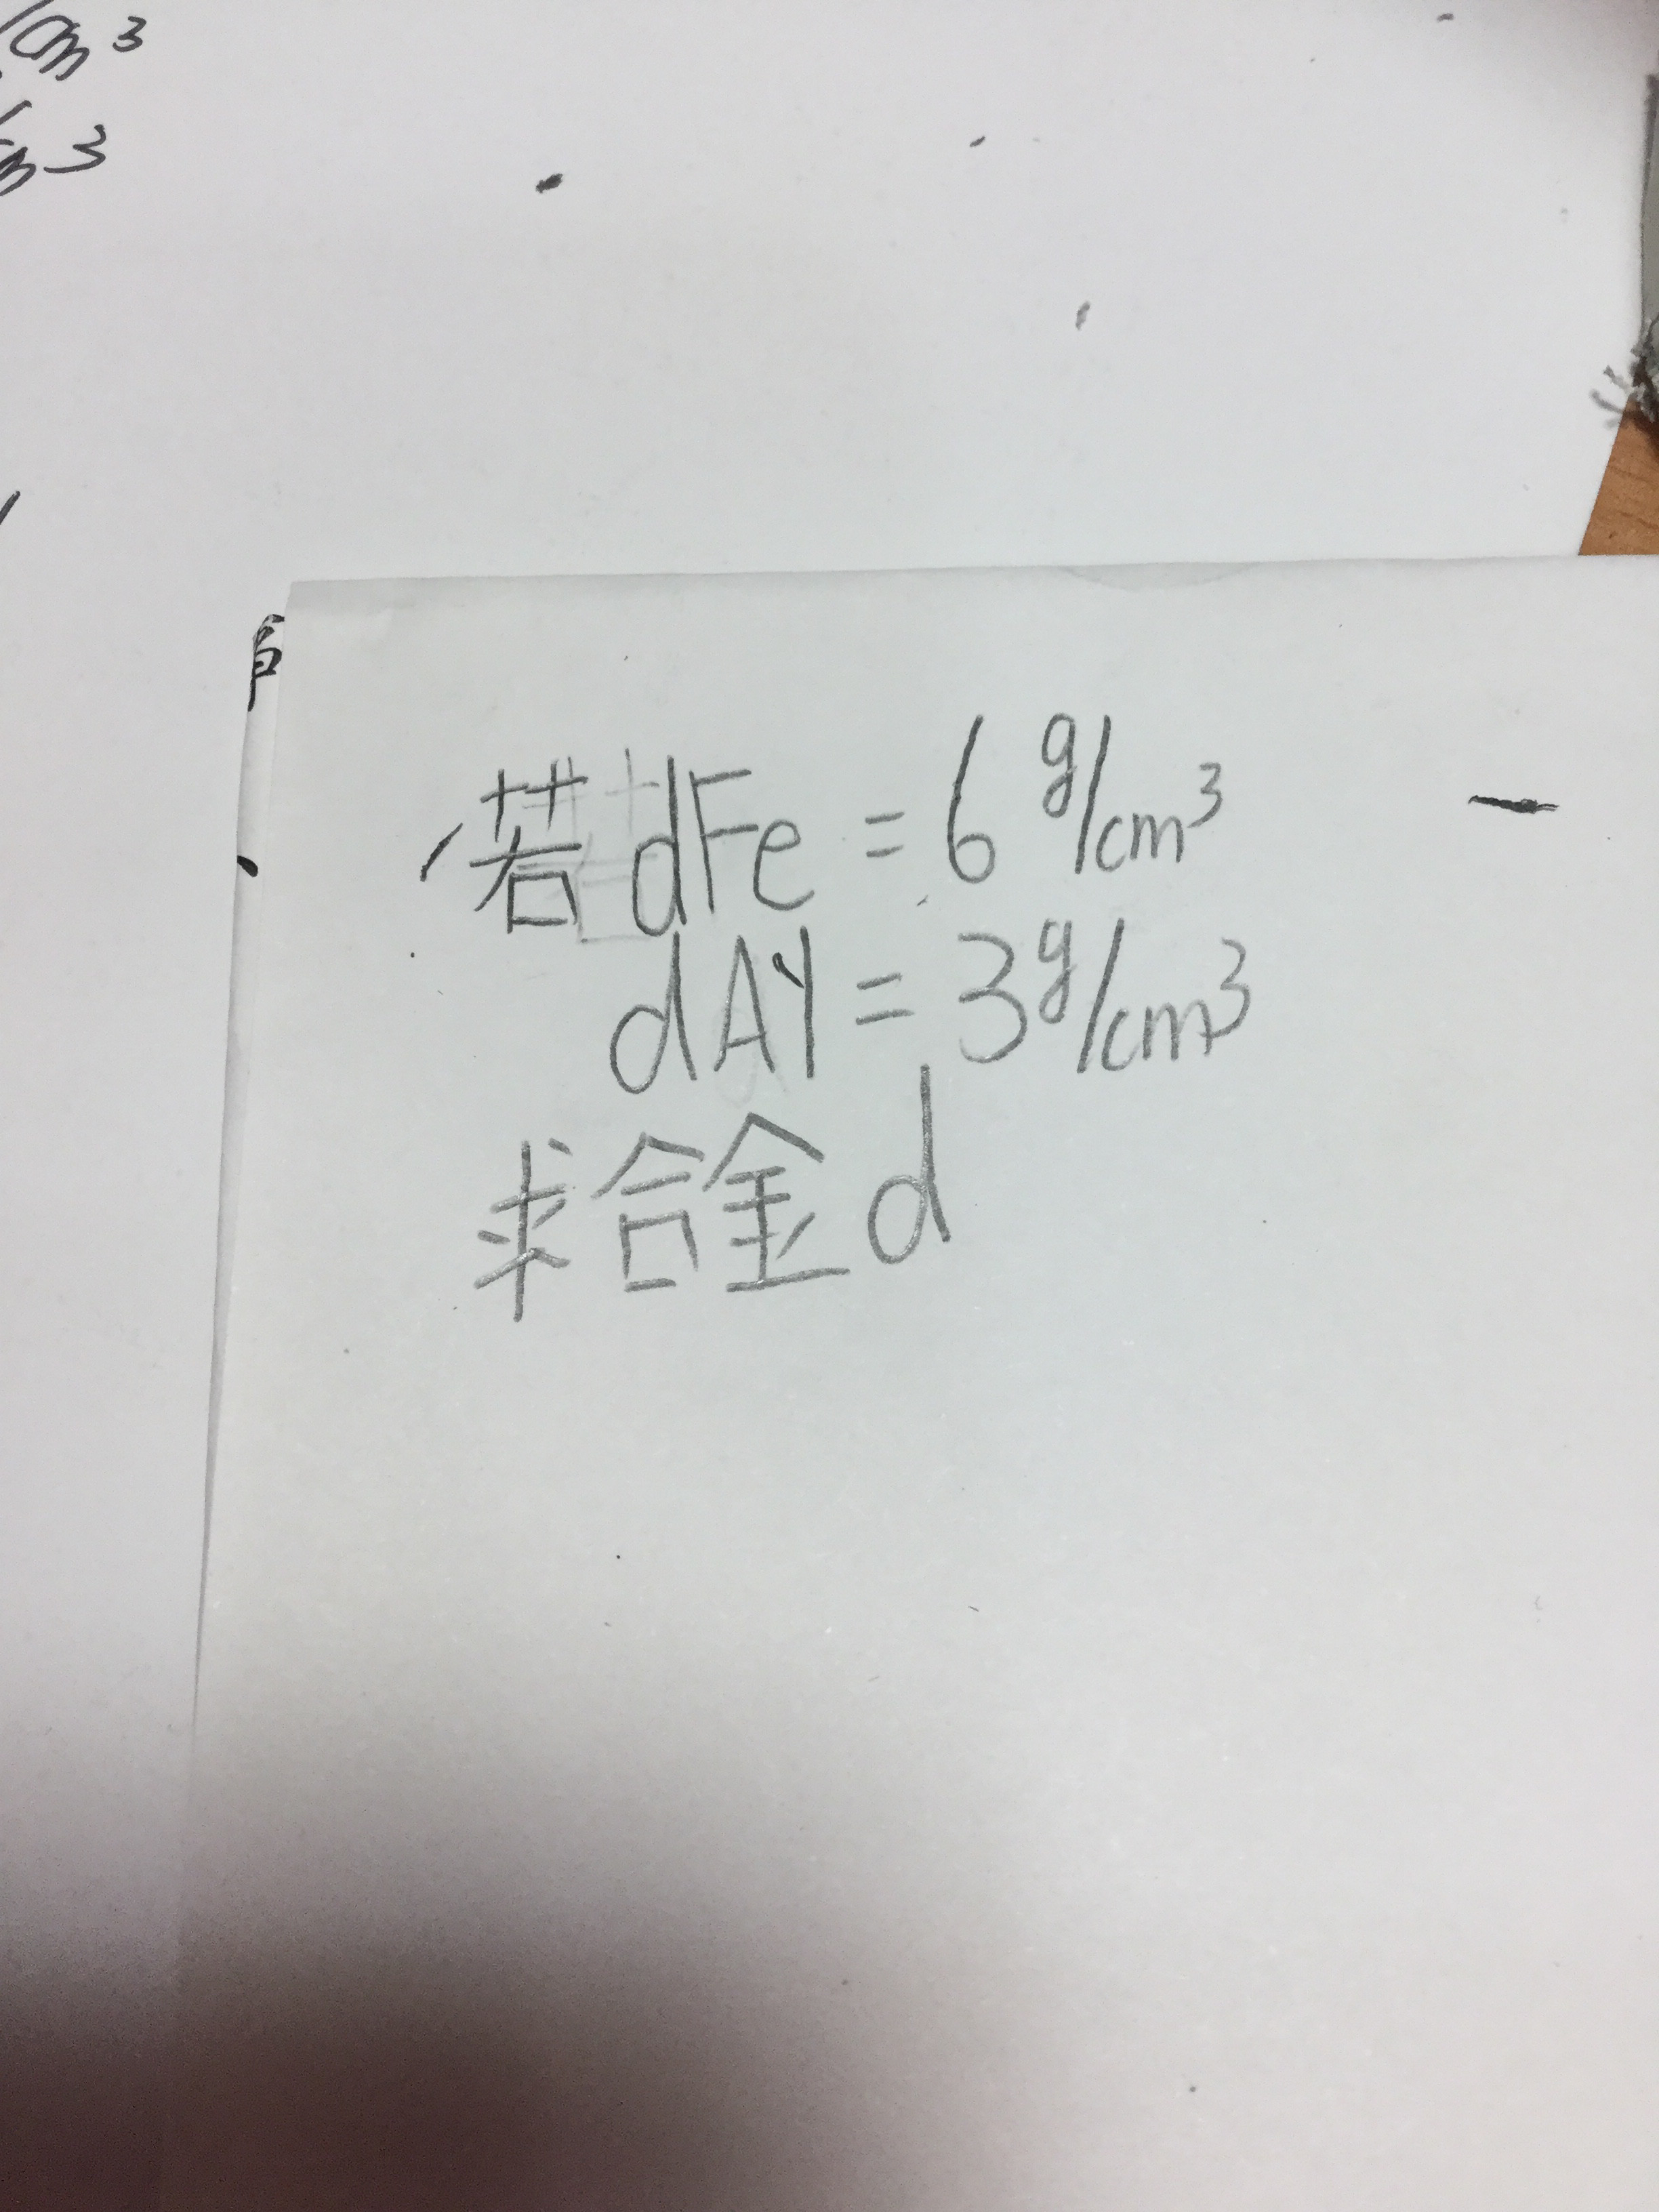 cm³
cm³
若dFe = 6 g/cm³
dAl = 3 g/cm³
求合金d